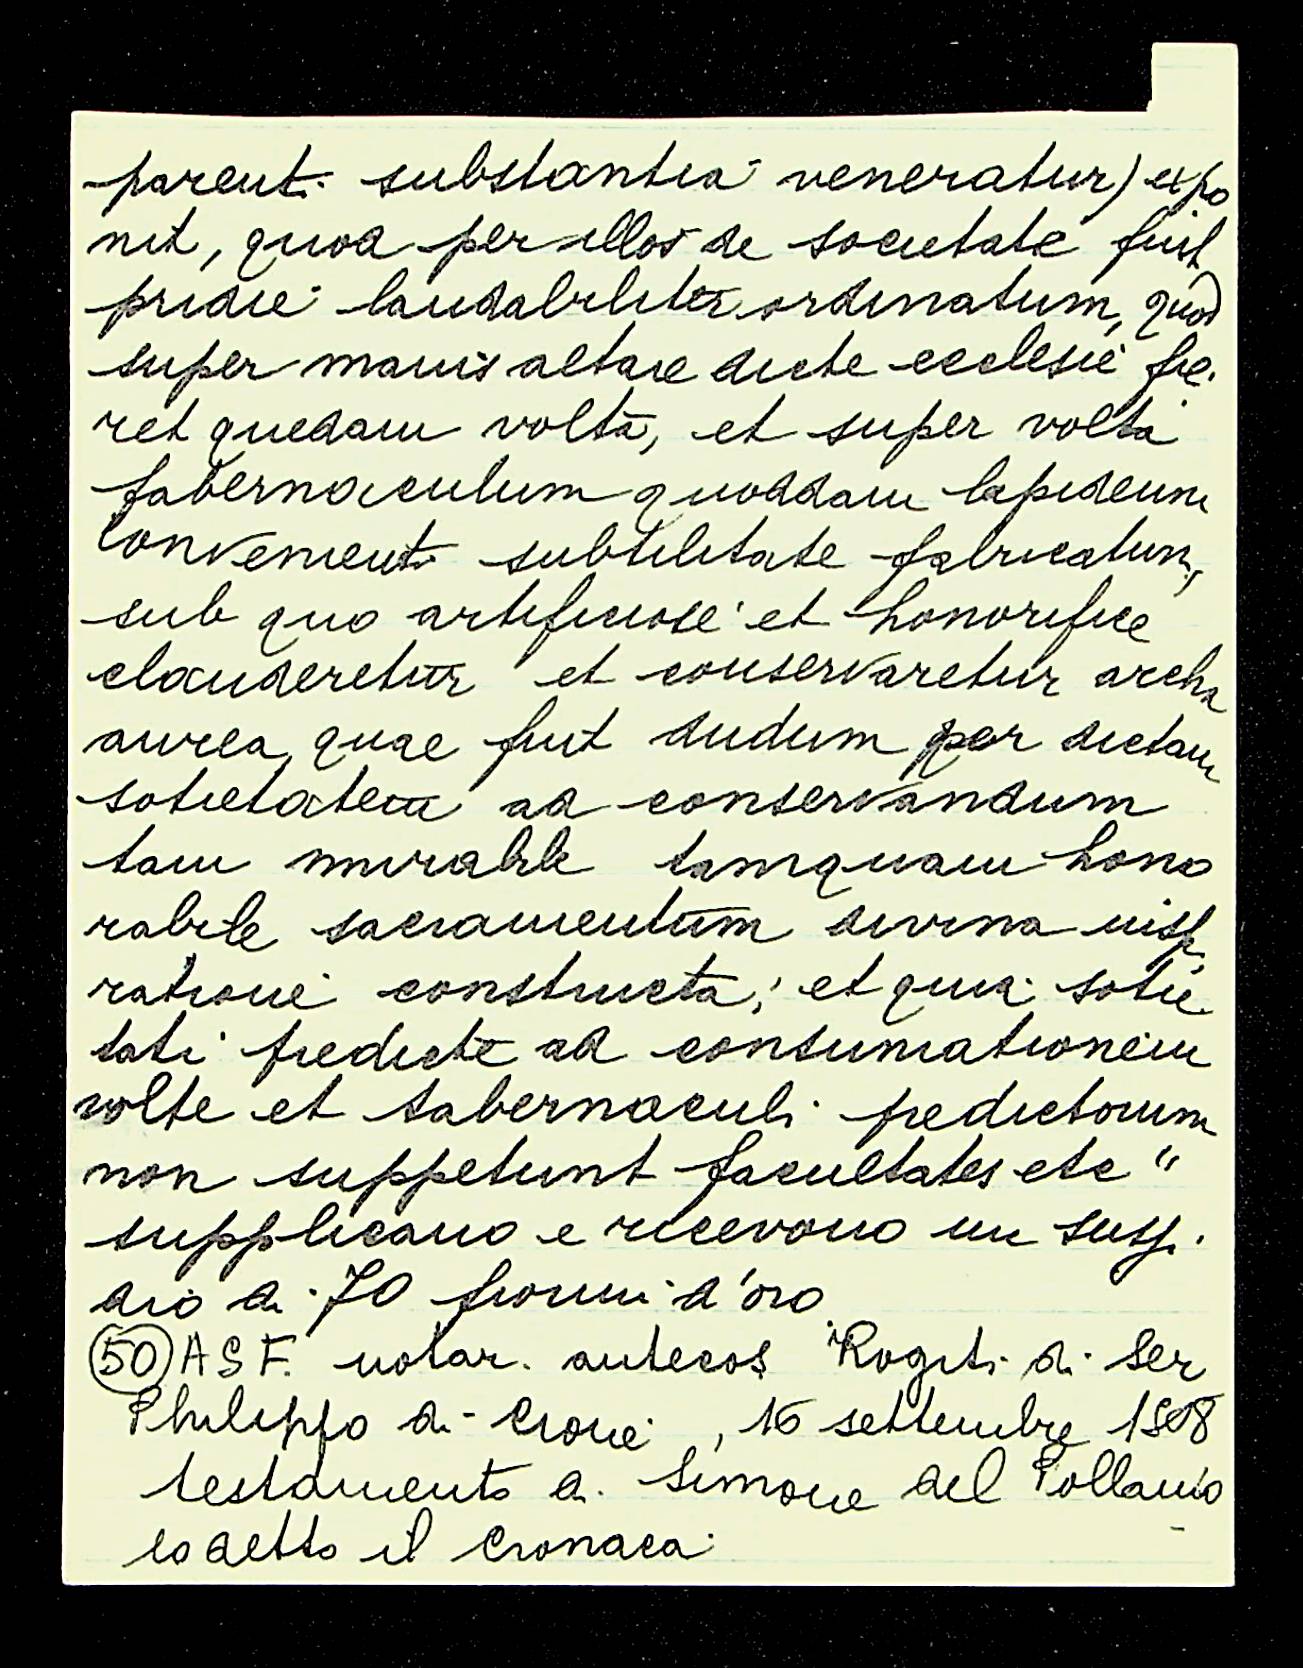 parenti substantia veneratur) expo
nit, quod per illos de societate fuit
pridie laudabiliter ordinatum, quod
super maius altare dicte ecclesie fie.
ret quedam volta, et super volta
tabernaculum quoddam lapideum
convenienti subtilitate fabricatum,
sub quo artificiose et honorifice
clauderetur et conservaretur archa
aurea, quae fuit dudum per dictam
sotietatem ad conservandum
tam mirabile tamquam hono
rabile sacramentum divina insp
ratione constructa; et quia sotie
tati predicte ad consumationem
volte et tabernaculi predictorum
non suppetunt facultates etc "
supplicano e ricevono un sussi
dio di 70 fiorini d'oro
(50) ASF. notar. antecos Rogiti di Ser
Philippo di Cione, 16 settembre 1508
testamento di Simone del Pollaiuo
lo detto il Cronaca